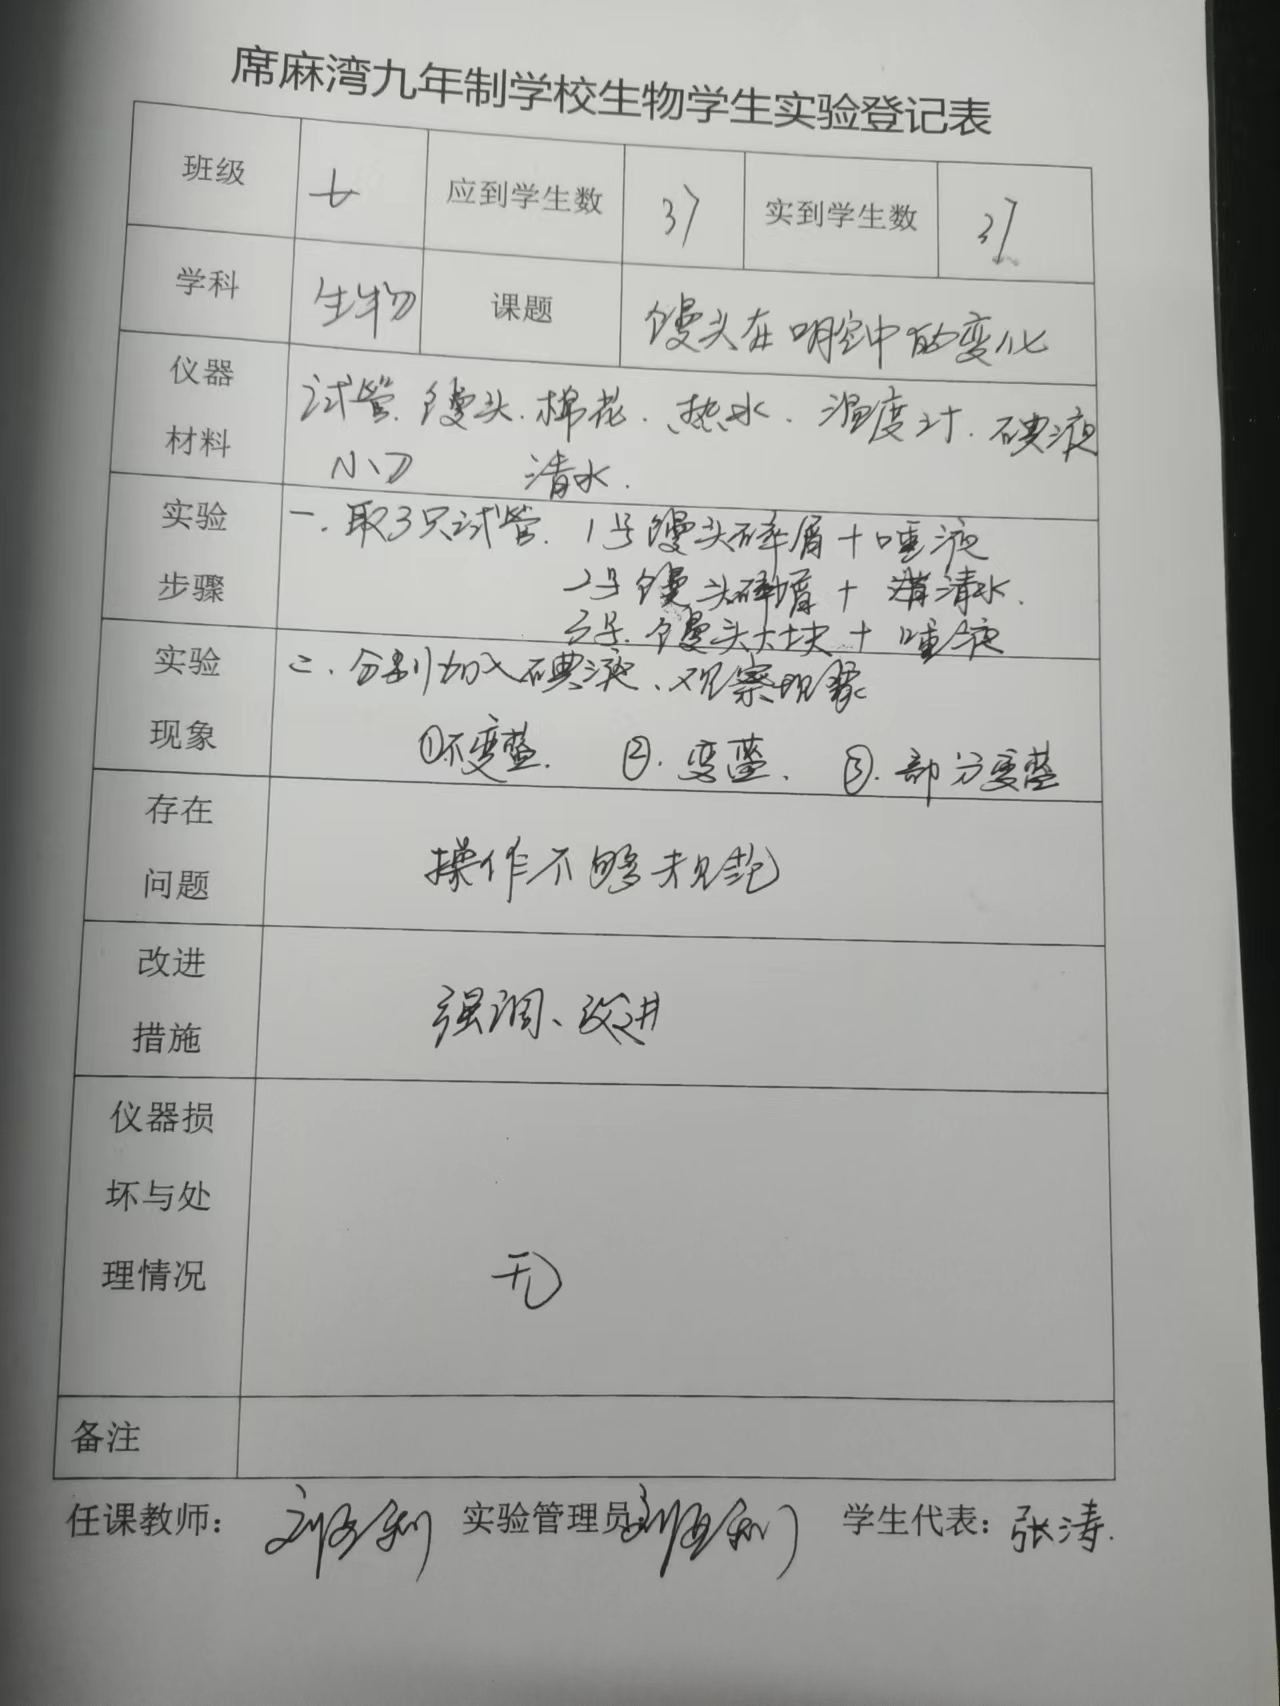 席麻湾九年制学校生物学生实验登记表
班级 七 应到学生数 37 实到学生数 37
学科 生物 课题 馒头在口腔中的变化
仪器
材料
试管、馒头、棉花、热水、温度计、碘液
小刀 清水.
实验
步骤
一、取3只试管. 1号馒头碎屑+唾液
2号馒头碎屑+清水.
3号.馒头大块+唾液
实验
现象
二、分别加入碘液、观察现象
①不变蓝. ②.变蓝. ③.部分变蓝
存在
问题
操作不够规范
改进
措施
强调、改进
仪器损
坏与处
理情况
无
备注
任课教师: 实验管理员 学生代表: 张涛.